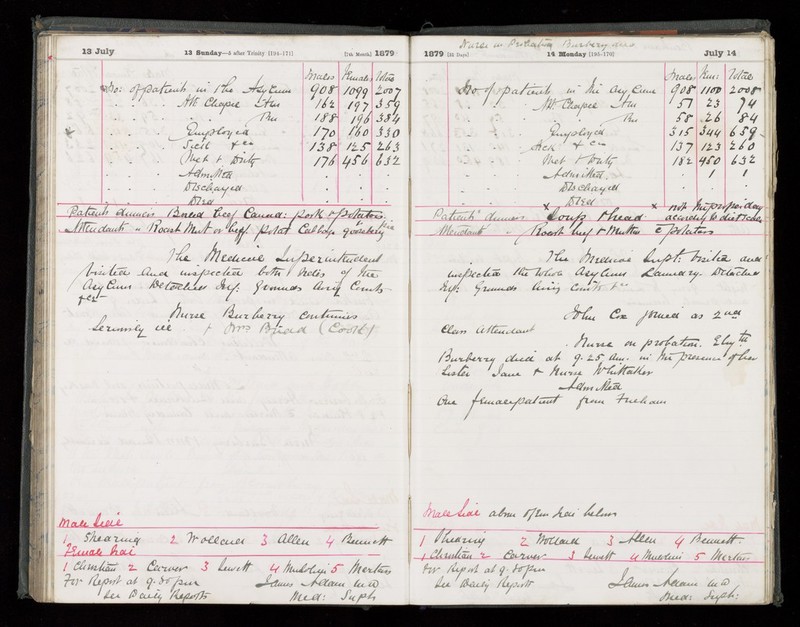 13 July 13 Sunday—5 after Trinity [194-171] [7th Month] 1879
Males Females Total
No: of patients in the Asylum 908 1099 2007
" " " At Chapel Am 162 197 359
" " " " Pm 188 196 384
" " " Employed 170 160 330
" " " Sick &c 138 125 263
" " " Wet & Dirty 176 456 632
" " " Admitted . . .
" " " Discharged . . .
" " " Died . . .
Patients dinners Bread Beef Canned: pork & potatoes
Attendants " Roast Mut or beef potat Cabbage gooseberry pie
The Medical Superintendent
visited and inspected both sides of the
Asylum Detached Hosp: Grounds Airing Courts
&c
Nurse Burberry continues
seriously ill & Mrs Bread (Cook)
Male Side
1 Shearing 2 Wollard 3 Allen 4 Bennett
Female Side
1 Christian 2 Carver 3 Sewett 4 5 Mertens
For Report at 9.30 pm James Adam MD
See Daily Reports Med: Supt:
Nurse on Probation Burberry died
1879 [31 Days] 14 Monday [195-170] July 14
Males Fem: Total
No. of patients in the Asylum 908 1100 2008
" " At Chapel Am 51 23 74
" " " Pm 58 26 84
" " Employed 315 344 659
" " Sick &c 137 123 260
" " Wet & Dirty 182 450 632
" " Admitted . 1 1
" " Discharged . . .
" " Died . . .
Patients dinners x Soup & bread x not the proper day according to diet scale
Attendants " Roast beef & Mutton & potatoes
The Medical Supt: visited and
inspected the whole Asylum Laundry Detached
Hosp: Grounds Airing Courts &c
John Cox joined as 2nd
Class Attendant
Nurse on probation Elizth
Burberry died at 9.25 Am. in the presence of her
Sister Jane & Nurse Whittaker
Admitted
One female patient from Fulham
Male Side above & Fem side below
1 Shearing 2 Wollard 3 Allen 4 Bennett
1 Christian 2 Carver 3 Sewett 4 5 Mertens
For Report at 9.30 pm James Adam MD
See Daily Reports Med: Supt: